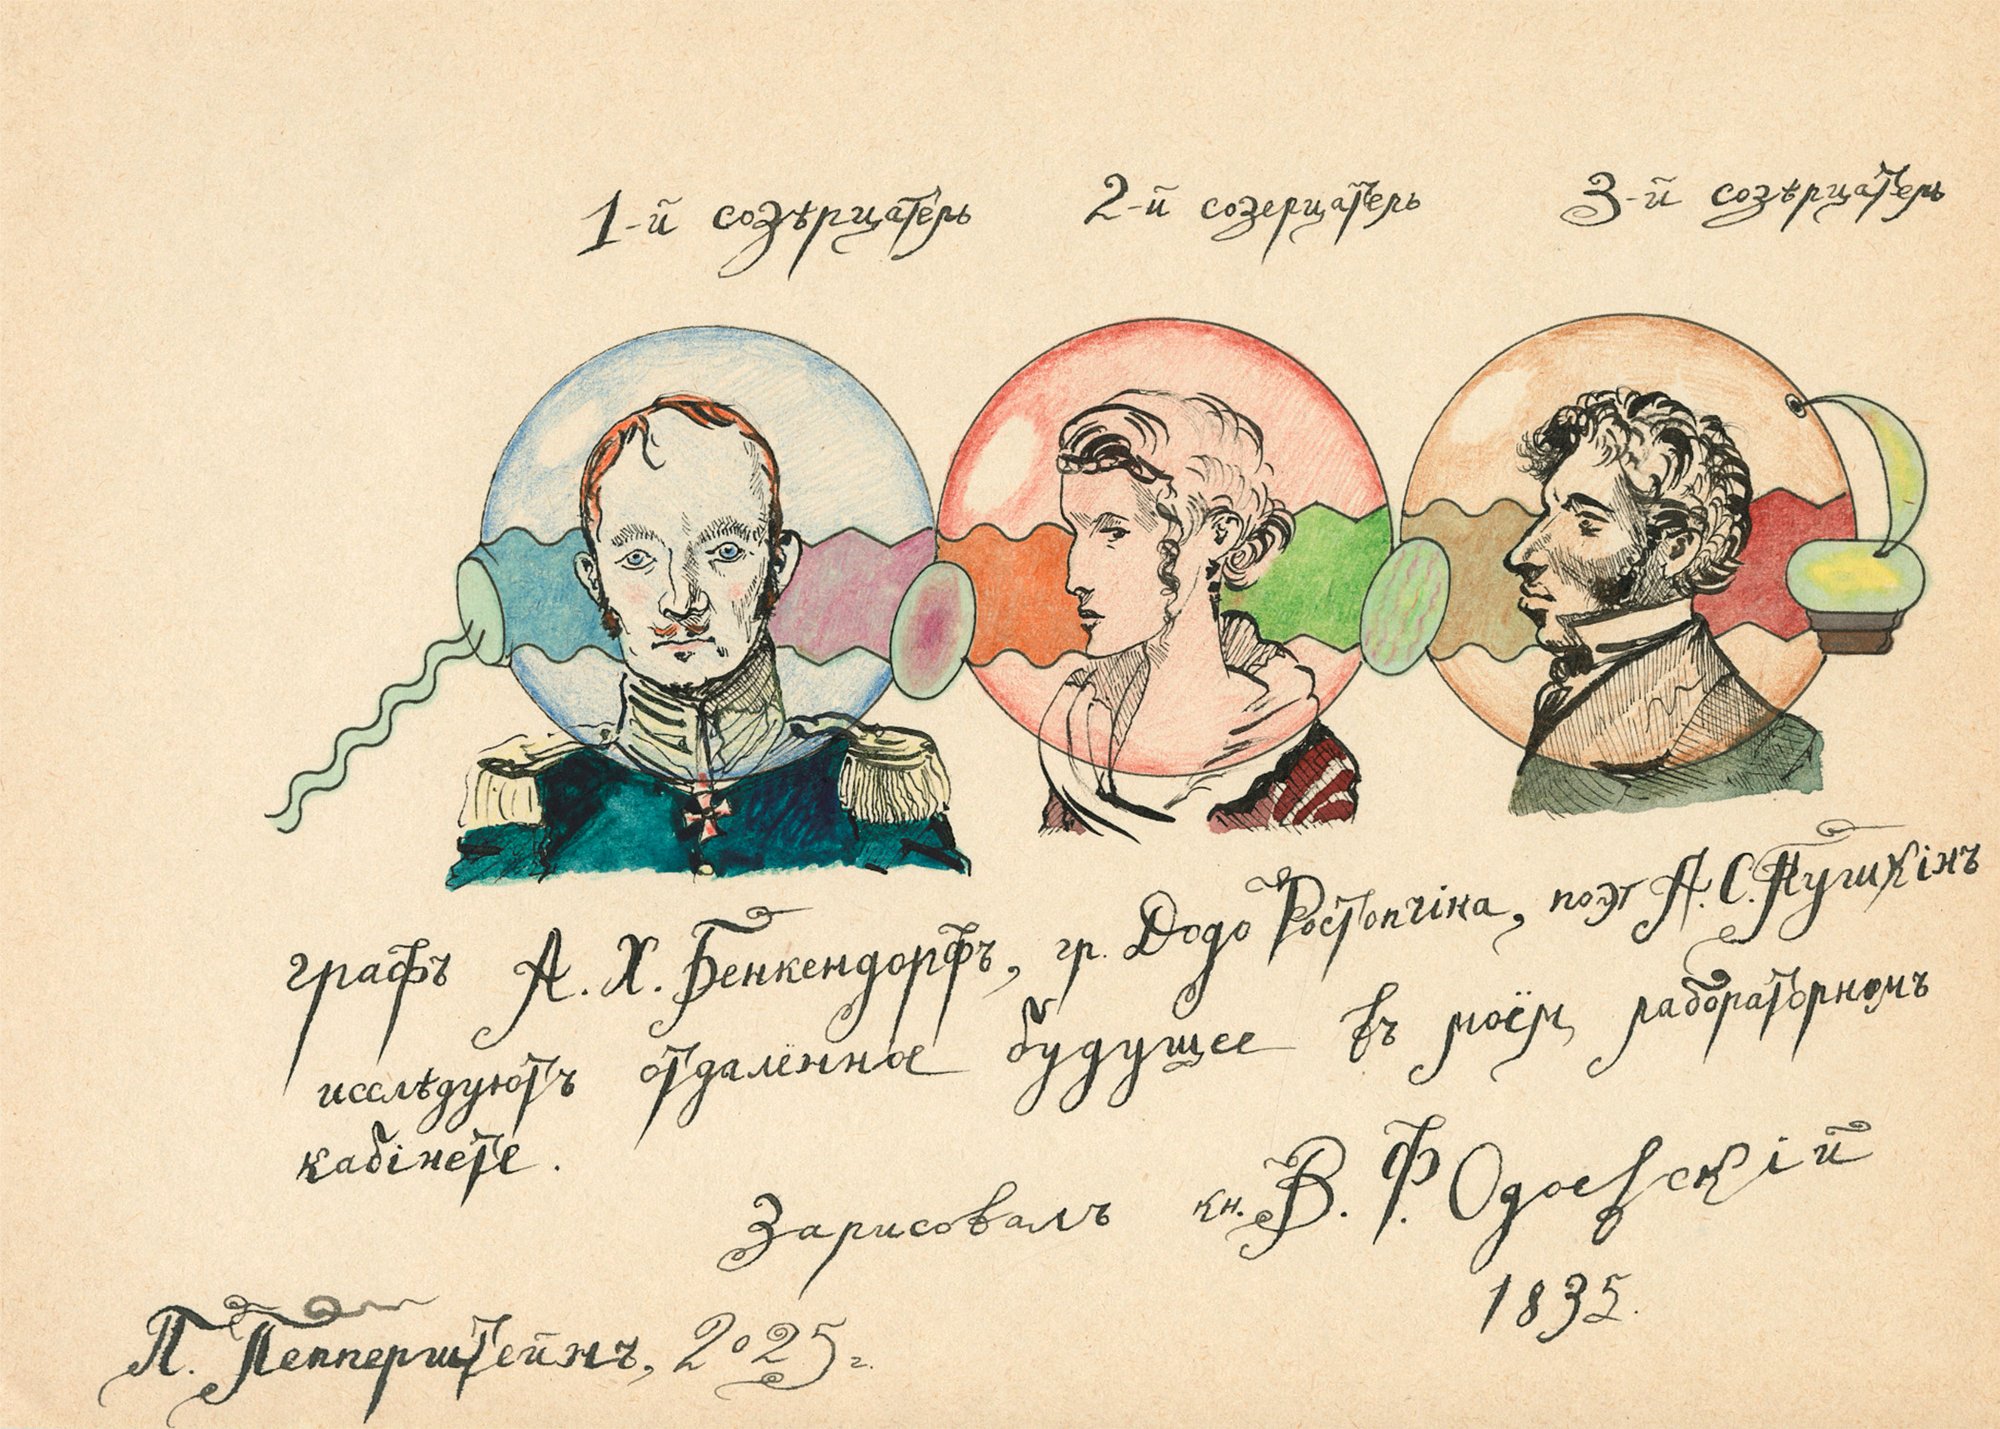 1-й созѣрцатель
2-й созерцатель
3-й созѣрцатель
графъ А. Х. Бенкендорфъ, гр. Додо Ростопчіна, поэт А. С. Пушкінъ
исслѣдуютъ отдалённое будущее въ моём лабораторномъ
кабінете.
Зарисовалъ кн. В. Ф. Одоевскій
1835.
П. Пепперштейнъ, 2025 г.